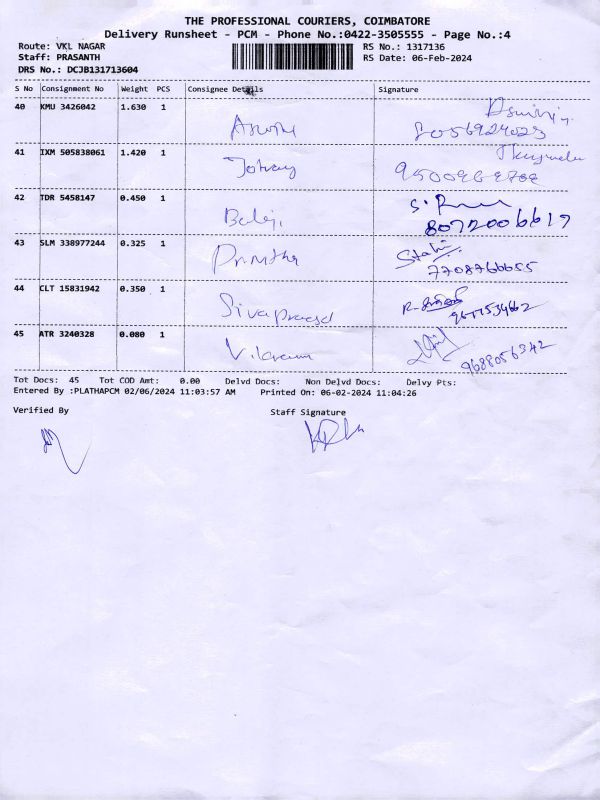 THE PROFESSIONAL COURIERS, COIMBATORE
Delivery Runsheet - PCM - Phone No.:0422-3505555 - Page No.:4
Route: VKL NAGAR RS No.: 1317136
Staff: PRASANTH RS Date: 06-Feb-2024
DRS No.: DCJB131713604
S No Consignment No Weight PCS Consignee Details Signature
40 KMU 3426042 1.630 1
8056924023
41 IXM 505838061 1.420 1
42 TDR 5458147 0.450 1
Balaji 8072006617
43 SLM 338977244 0.325 1
7708766655
44 CLT 15831942 0.350 1
Sivaprasad
45 ATR 3240328 0.080 1
9688056342
Tot Docs: 45 Tot COD Amt: 0.00 Delvd Docs: Non Delvd Docs: Delvy Pts:
Entered By :PLATHAPCM 02/06/2024 11:03:57 AM Printed On: 06-02-2024 11:04:26
Verified By Staff Signature